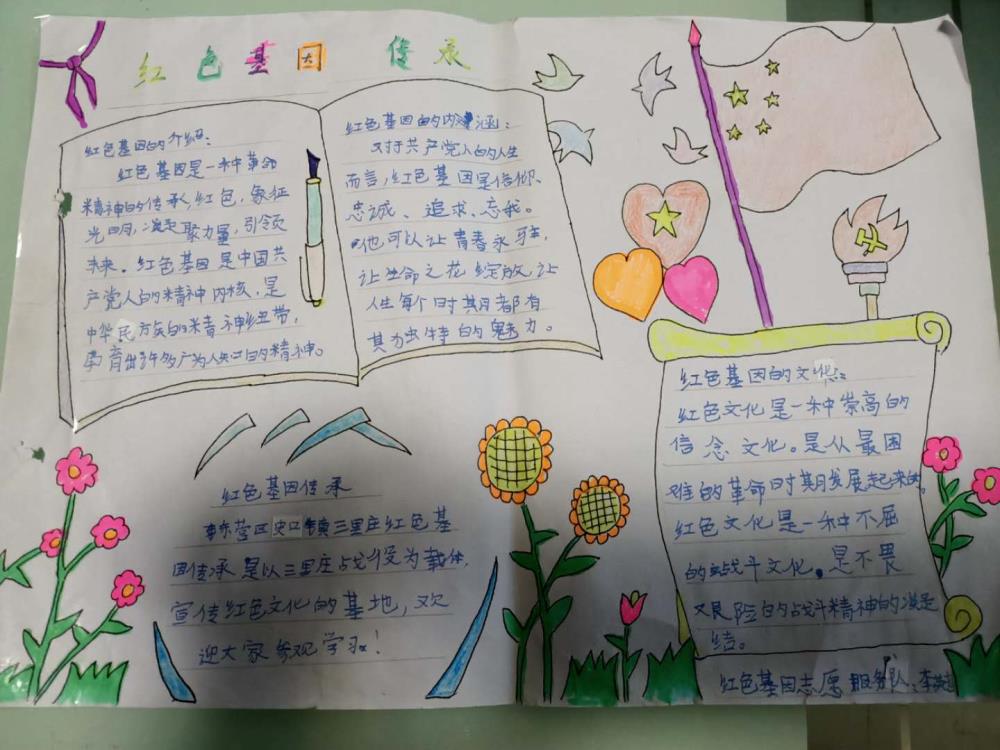 红色基因 传承
红色基因的介绍:
红色基因是一种革命
精神的传承,红色,象征
光明,凝聚力量,引领
未来。红色基因是中国共
产党人的精神内核,是
中华民族的精神纽带,
孕育出许多广为人知的精神。
红色基因的内涵:
对于共产党人的人生
而言,红色基因是信仰、
忠诚、追求、忘我。
他可以让青春永驻,
让生命之花绽放,让
人生每个时期都有
其为独特的魅力。
红色基因传承
东营区史口镇三里庄红色基
因传承是以三里庄战役为载体,
宣传红色文化的基地,欢
迎大家参观学习!
红色基因的文化:
红色文化是一种崇高的
信念文化。是从最困
难的革命时期发展起来的。
红色文化是一种不屈
的战斗文化。是不畏
艰险的战斗精神的凝
结。
红色基因志愿服务队:李